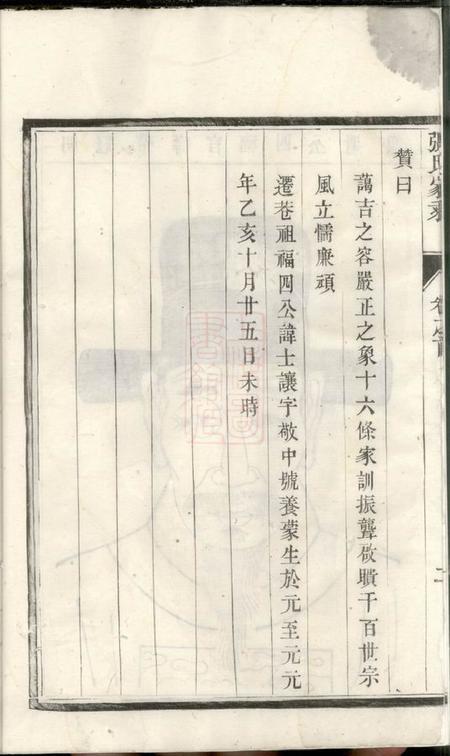 張氏家乘
贊曰
藹吉之容嚴正之象十六條家訓振聾啟聵千百世宗
風立懦廉頑
遷巷祖福四公諱士讓字敬中號養蒙生於元至元元
年乙亥十月廿五日未時